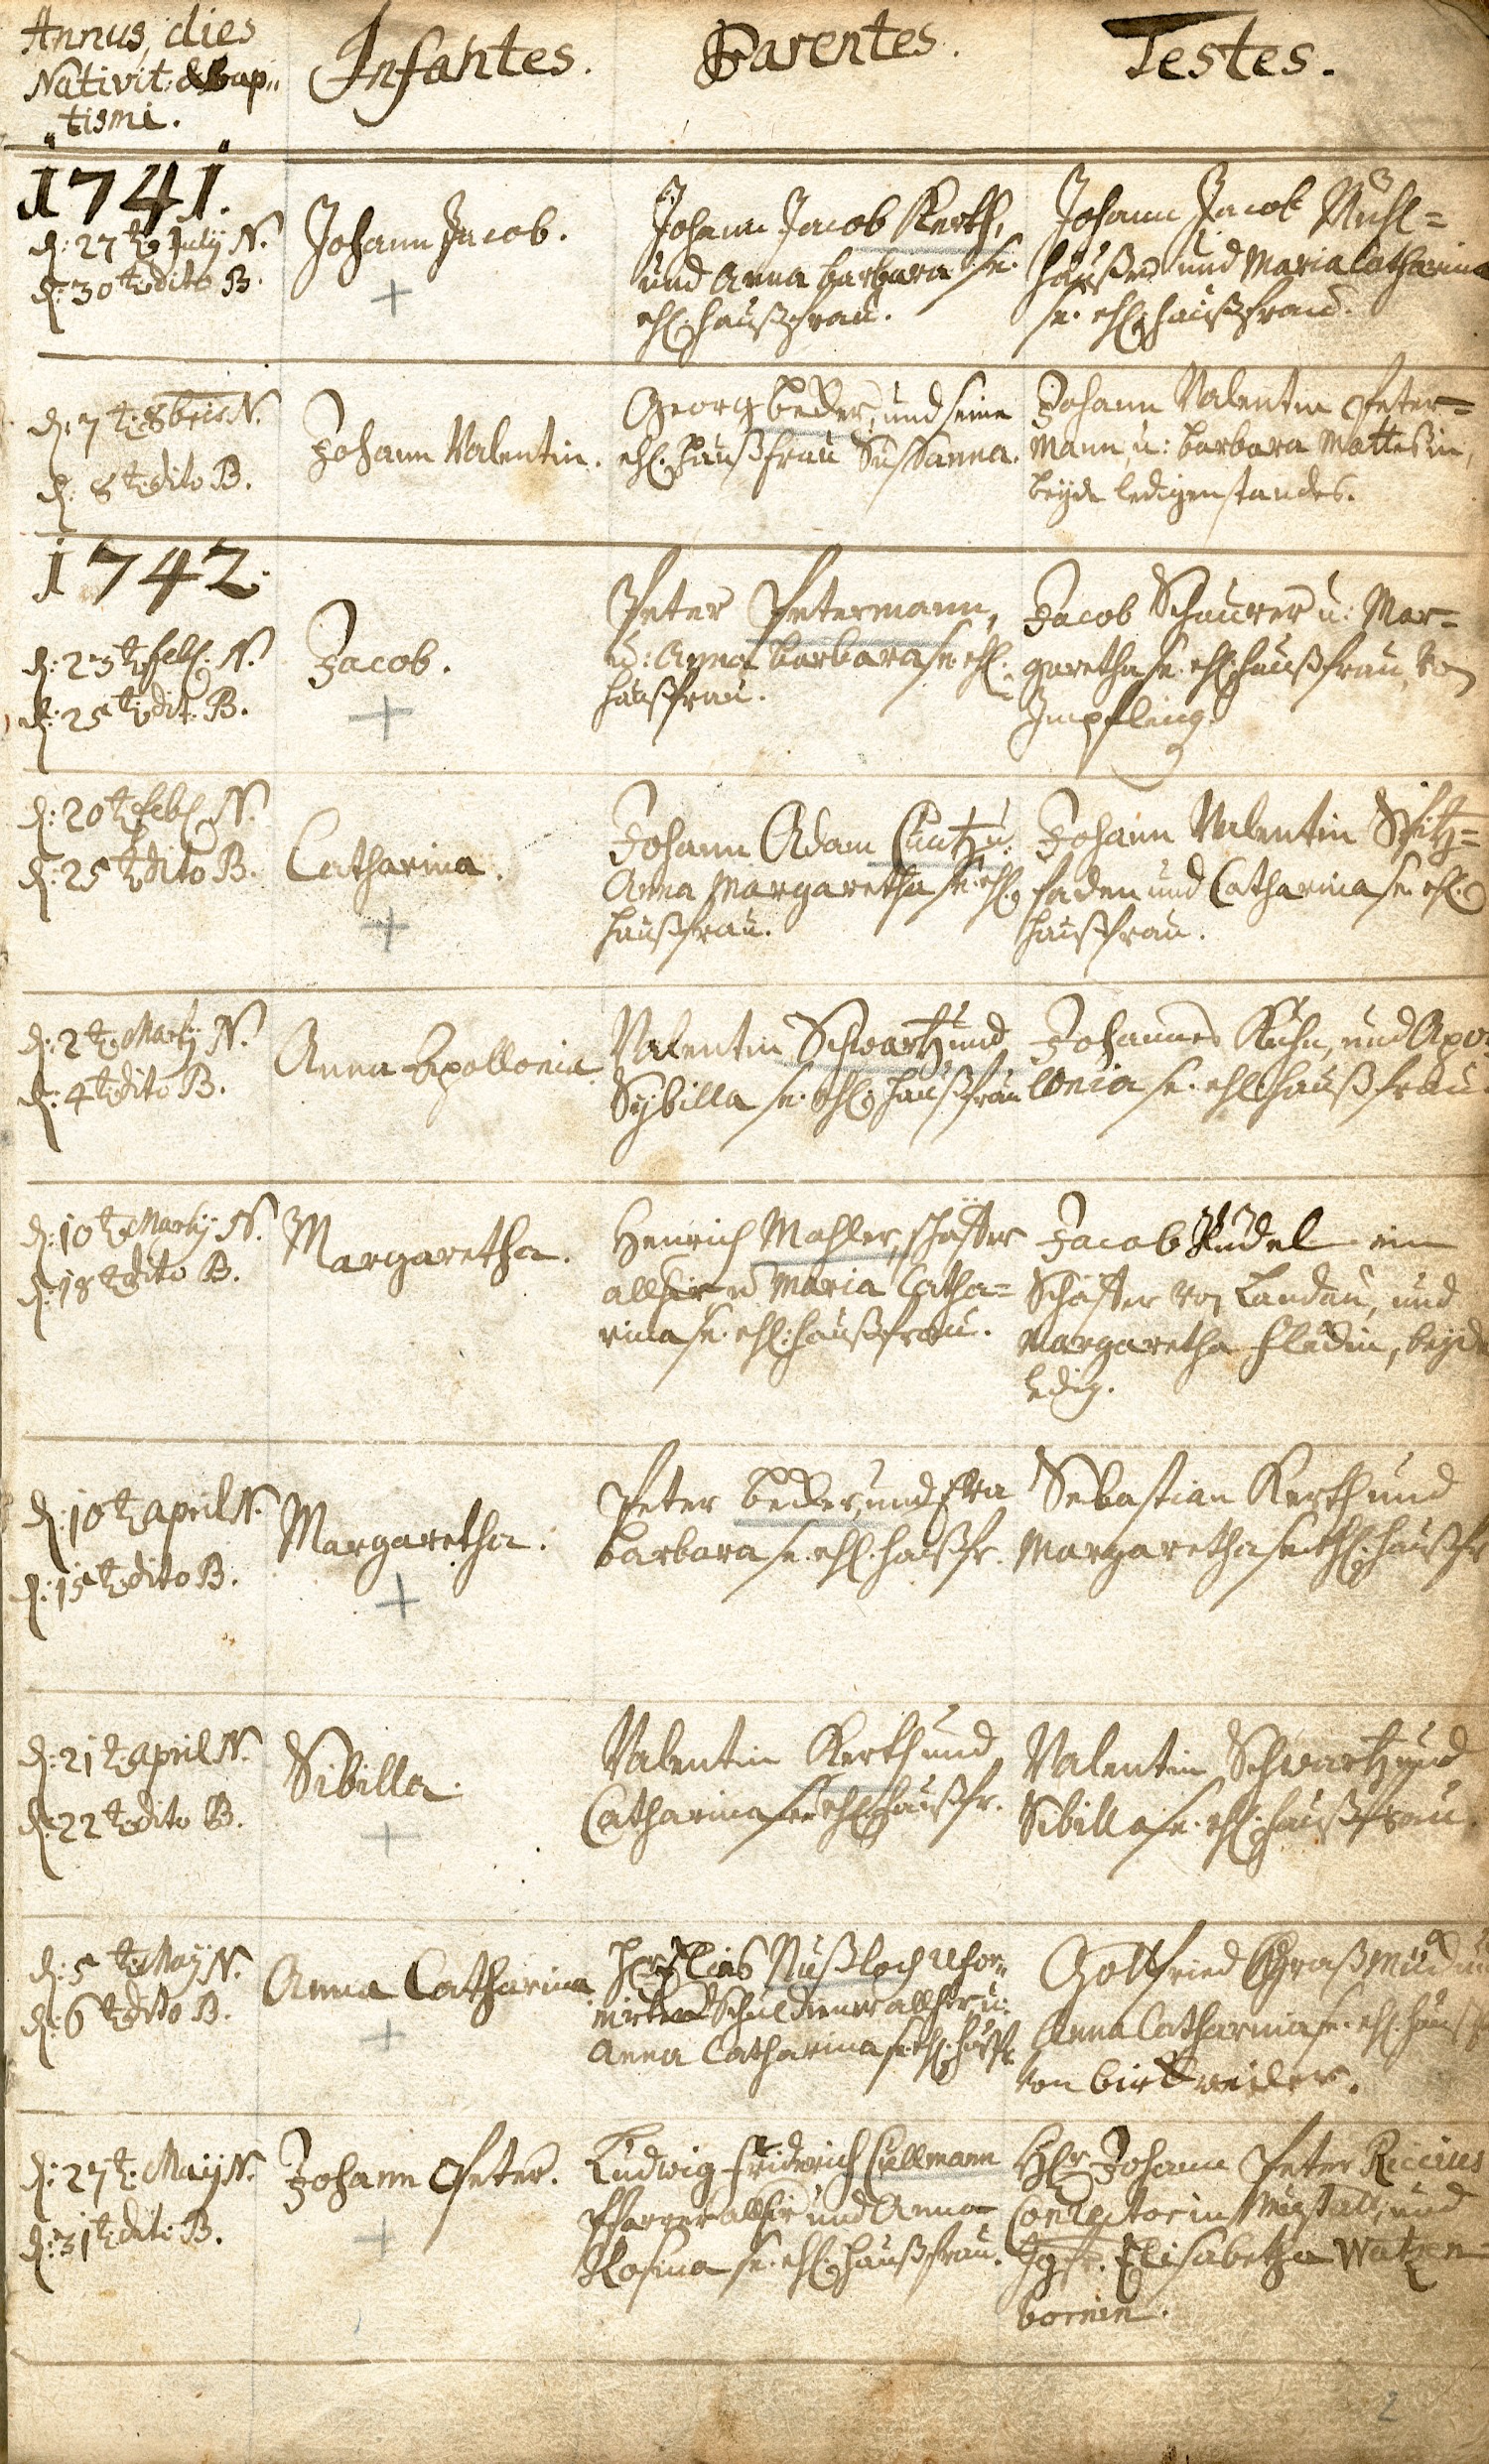 Annus, dies
Nativit: & Bap„
„tismi.
Infantes.
Parentes.
Testes.
1741.
d: 27t July N.
d: 30t dito B.
Johann Jacob.
Johann Jacob Kerth,
und Anna barbara se.
ehl. haußfrau.
Johann Jacob Mühl=
häußer und Maria Catharina
se. ehl. haußfrau.
d: 7t 8bris N.
d: 8t dito B.
Johann Valentin.
Georg beder, und seine
ehl. haußfrau Susanna.
Johann Valentin Peter=
mann, u: barbara Mattesin,
beyde ledigen standes.
1742.
d: 23t feb. N.
d: 25t dit. B.
Jacob.
Peter Petermann,
u: Anna barbara se. ehl.
haußfrau.
Jacob Schaurer u: Mar=
garetha se. ehl. haußfrau, von
Impfling.
d: 20t feb. N.
d: 25t dito B.
Catharina.
Johann Adam Cuntz u:
Anna Margaretha se. ehl.
haußfrau.
Johann Valentin Spitz=
faden und Catharina se. ehl.
haußfrau.
d: 2t Martij N.
d: 4t dito B.
Anna Apollonia.
Valentin Schwartz und
Sybilla se. ehl. haußfrau
Johannes Kuhn, und Apo=
lonia se. ehl. haußfrau.
d: 10t Martij N.
d: 18t dito B.
Margaretha.
Henrich Mahler, schäffer
allhier u Maria Catha=
rina se. ehl. haußfrau.
Jacob Rudel ein
Schäffer von Landau, und
Margaretha , beyde
ledig.
d: 10t april N.
d: 15t dito B.
Margaretha.
Peter beder, und Eva
barbara se. ehl. haußfr.
Sebastian Kerth und
Margaretha se. ehl. haußfr
d: 21t april N.
d: 22t dito B.
Sibilla.
Valentin Kerth und
Catharina se. ehl. haußfr.
Valentin Schwartz und
Sibilla se. ehl. haußfrau.
d: 5t May N.
d: 6t dito B.
Anna Catharina
Hr Elias Nußloch refor„
mirter Schuldiener allhier, u:
Anna Catharina se. ehl. haußfr
Gottfried Graßmück und
Anna Catharina se. ehl. haußf
von birckweiler.
d: 27t May N.
d: 31t dit. B.
Johann Peter.
Ludwig Friderich Cullmann
Pfarrer allhier und Anna
Rosina se. ehl. haußfrau.
Hr Johann Peter Riccius
Conrector in Neustatt, und
Jgfr. Elisabetha Watzen=
bornin.
2